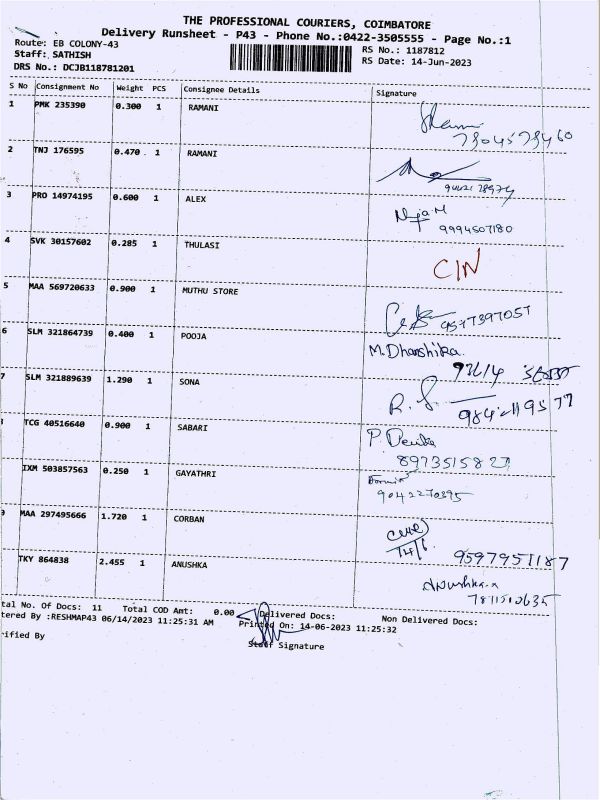 THE PROFESSIONAL COURIERS, COIMBATORE
Delivery Runsheet - P43 - Phone No.:0422-3505555 - Page No.:1
Route: EB COLONY-43
RS No.: 1187812
Staff: SATHISH
RS Date: 14-Jun-2023
DRS No.: DCJB118781201
S No Consignment No Weight PCS Consignee Details Signature
1 PMK 235390 0.300 1 RAMANI
2 TNJ 176595 0.470 1 RAMANI
3 PRO 14974195 0.600 1 ALEX
9994507180
4 SVK 30157602 0.285 1 THULASI
CIN
5 MAA 569720633 0.900 1 MUTHU STORE
9577397057
6 SLM 321864739 0.400 1 POOJA
M. Dharshika.
7 SLM 321889639 1.290 1 SONA
TCG 40516640 0.900 1 SABARI
8973515827
IXM 503857563 0.250 1 GAYATHRI
9042270395
9 MAA 297495666 1.720 1 CORBAN
14/6
9597951187
TKY 864838 2.455 1 ANUSHKA
Anushka.
tal No. Of Docs: 11 Total COD Amt: 0.00 Delivered Docs: Non Delivered Docs:
tered By :RESHMAP43 06/14/2023 11:25:31 AM Printed On: 14-06-2023 11:25:32
rified By
Staff Signature